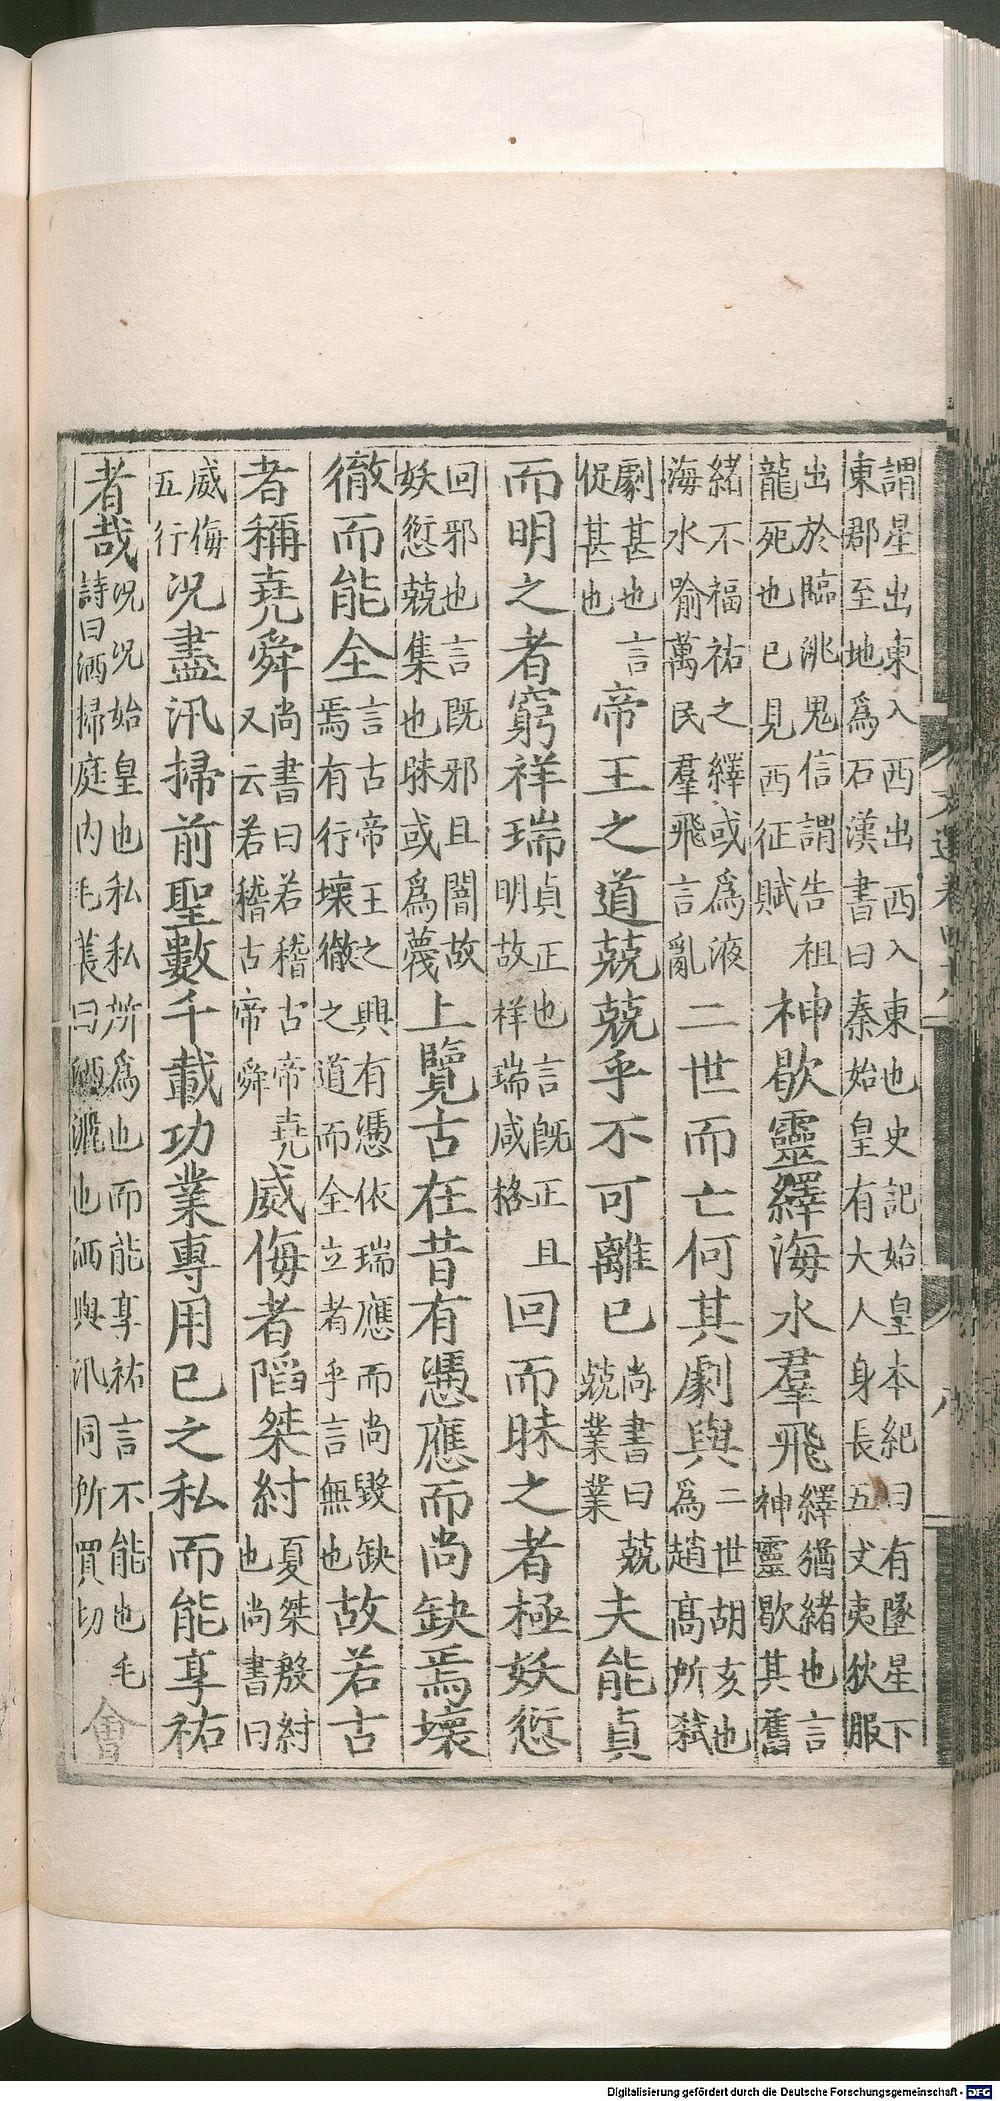 文選卷四十八
八
謂星出東入西出西入東也史記始皇本紀曰有墜星下
東郡至地爲石漢書曰秦始皇有大人身長五丈夷狄服
出於臨洮鬼信謂告祖
龍死也已見西征賦
神歇靈繹海水羣飛
繹猶緒也言
神靈歇其舊
緒不福祐之繹或爲液
海水喻萬民羣飛言亂
二世而亡何其劇與
二世胡亥也
爲趙高所弒
劇甚也言
促甚也
帝王之道兢兢乎不可離已
尚書曰兢
兢業業
夫能貞
而明之者窮祥瑞
貞正也言旣正且
明故祥瑞咸格
回而昧之者極妖愆
回邪也言旣邪且闇故
妖愆兢集也昧或爲蔑
上覽古在昔有憑應而尚缺焉壞
徹而能全
言古帝王之興有憑依瑞應而尚毀缺
焉有行壞徹之道而全立者乎言無也
故若古
者稱堯舜
尚書曰若稽古帝堯
又云若稽古帝舜
威侮者陷桀紂
夏桀殷紂
也尚書曰
威侮
五行
况盡汛掃前聖數千載功業專用已之私而能享祐
者哉
况况始皇也私私所爲也而能享祐言不能也毛
詩曰洒掃庭内毛萇曰洒灑也洒與汛同所買切
會
Digitalisierung gefördert durch die Deutsche Forschungsgemeinschaft - DFG